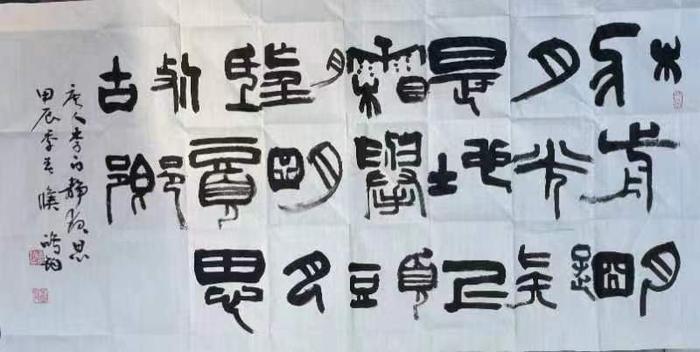 牀前明
月光疑
是地上
霜舉頭
望明月
低頭思
故鄉
唐人李白靜夜思
甲辰季春